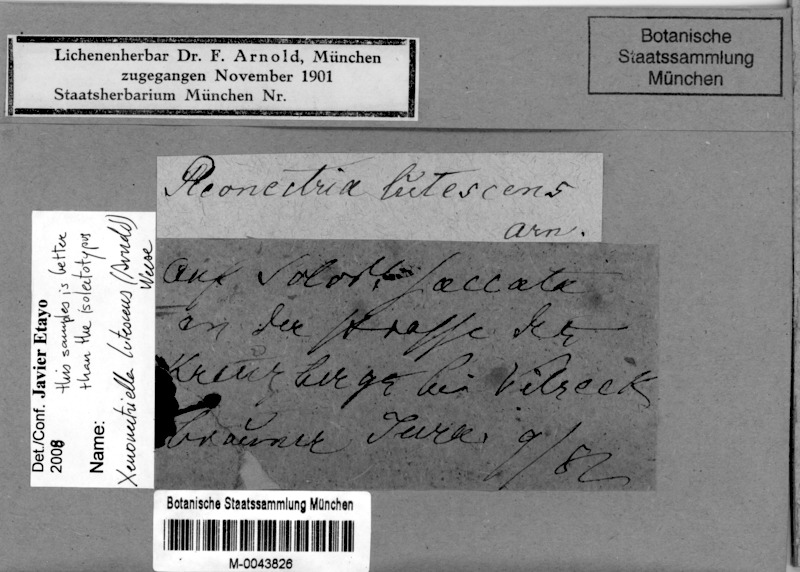 Lichenenherbar Dr. F. Arnold, München
zugegangen November 1901
Staatsherbarium München Nr.
Botanische
Staatssammlung
München
Pleonectria lutescens
Arn.
auf Solor. saccata
an der Strasse des
Kreuzberges bei Vilseck
brauner Jura. 9/82
Det./Conf. Javier Etayo
2008 this samples is better
than the isolectotypus
Name:
Xenonectriella lutescens (Arnold)
Weese
Botanische Staatssammlung München
M-0043826